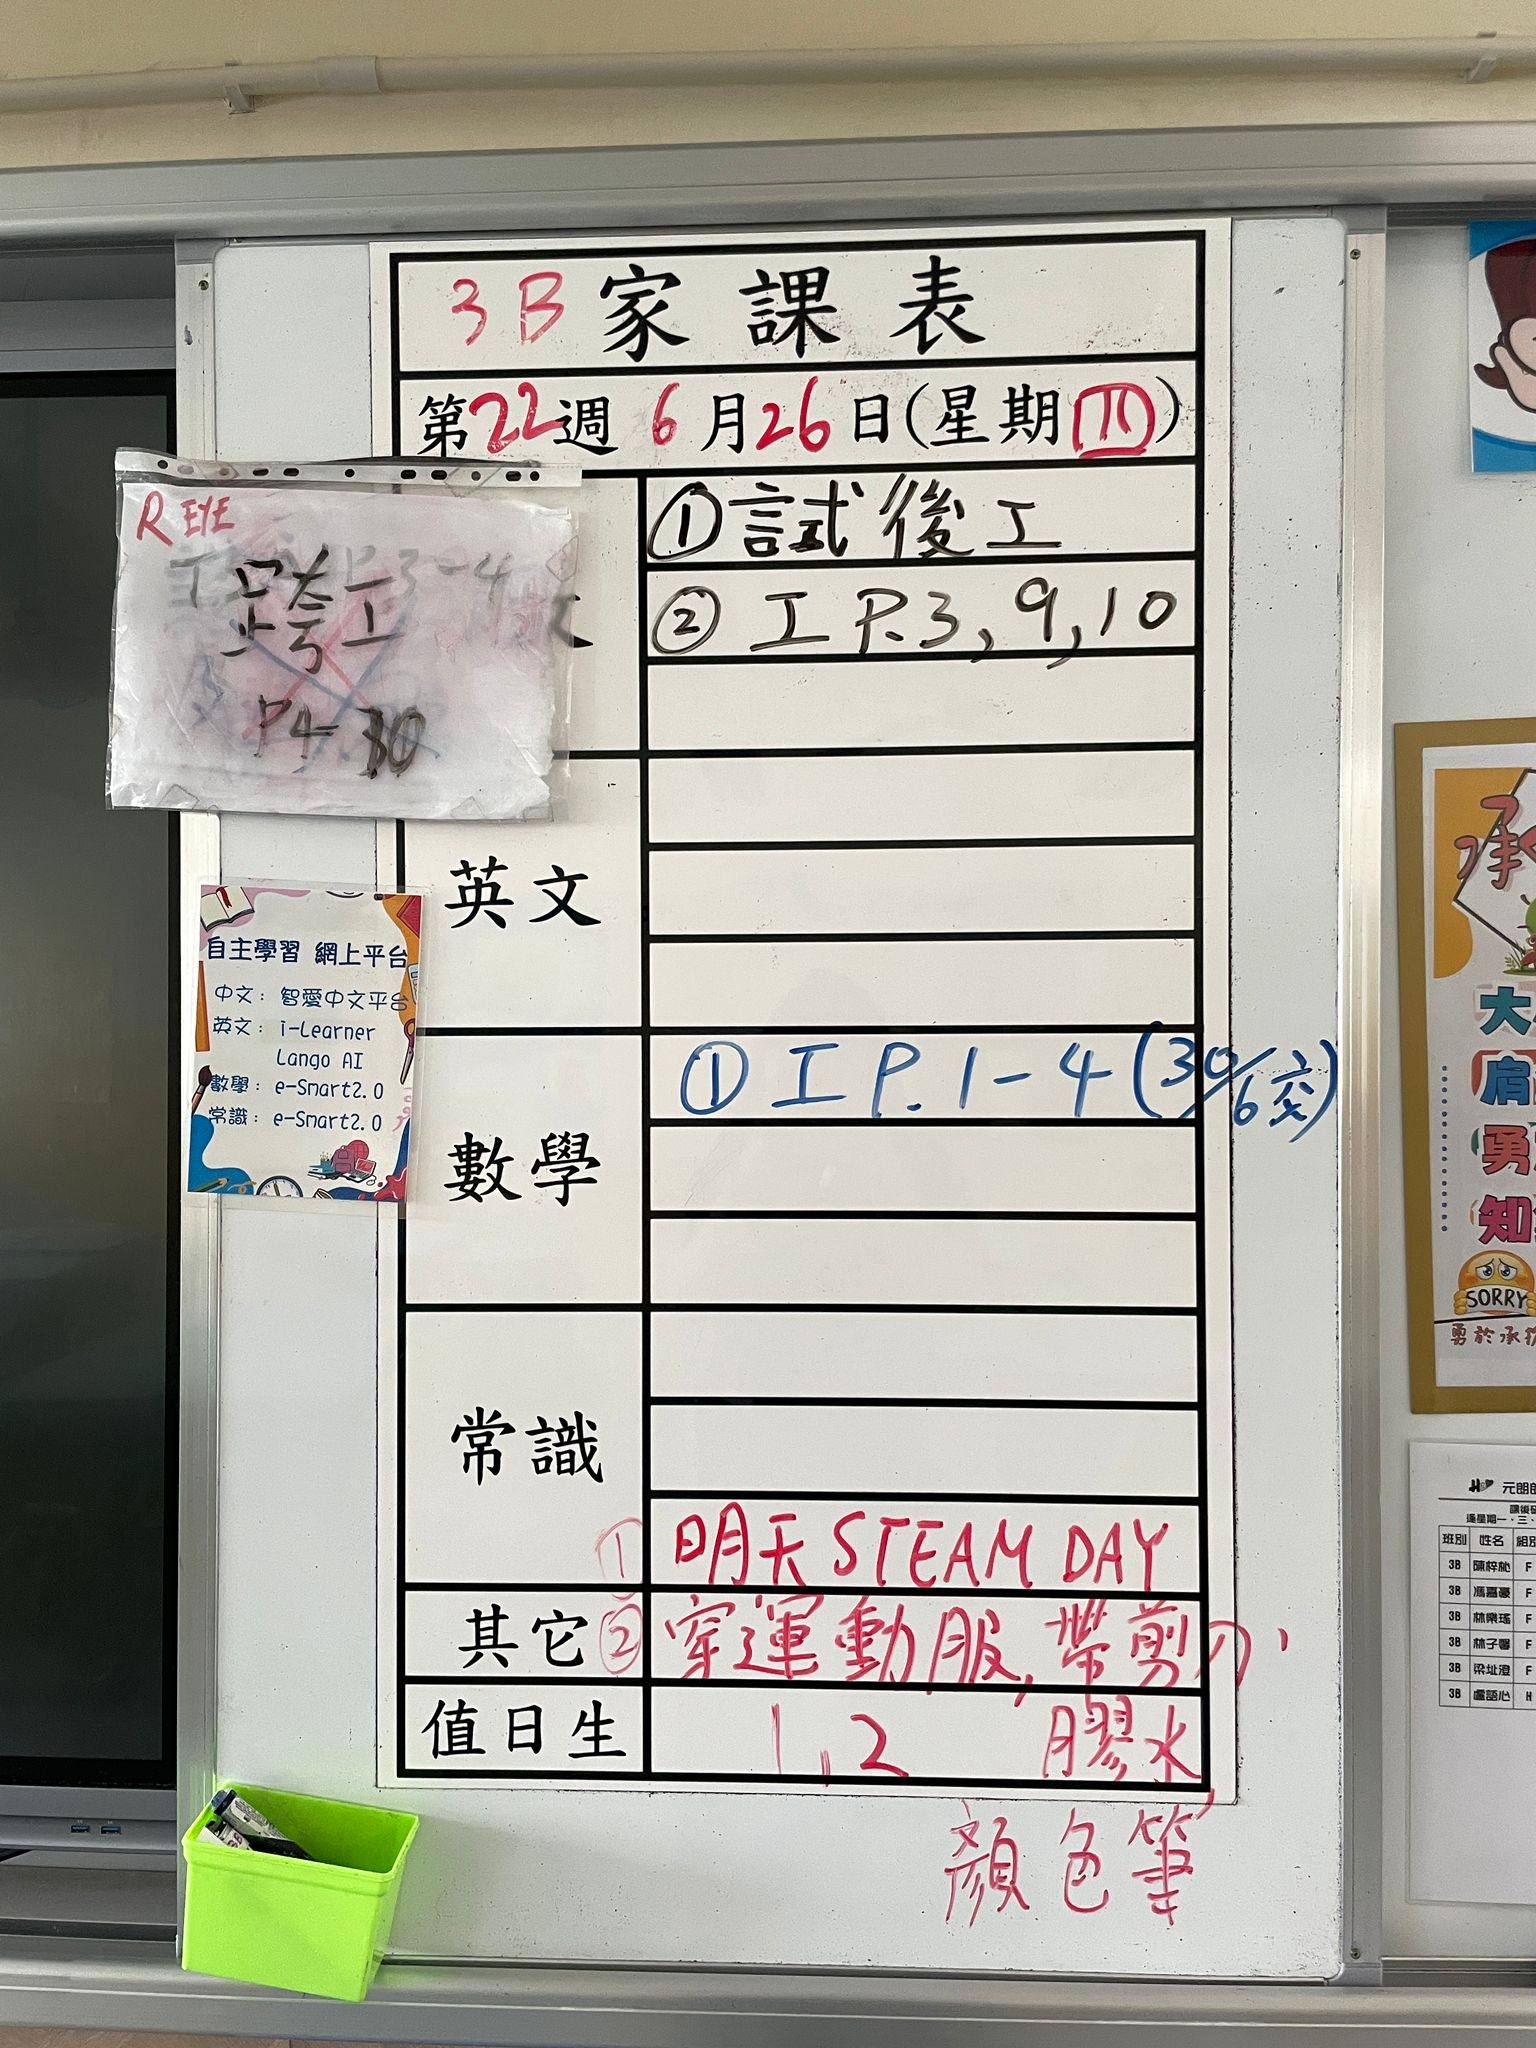 3B 家課表
第22週 6月26日(星期四)
R EYE
跨工
P4-30
文
① 試後工
② 工 P.3, 9, 10
英文
自主學習 網上平台
中文: 智愛中文平台
英文: i-Learner
Lango AI
數學: e-Smart2.0
常識: e-Smart2.0
數學
① 工 P. 1-4 (30/6交)
常識
① 明天 STEAM DAY
其它
② 穿運動服, 帶剪刀、
值日生
1, 2
膠水,
顏色筆
承
大
肩
勇
知
SORRY
勇於承
元朗
逢星期一、三、
班別 姓名 組別
3B F
3B 馮嘉豪 F
3B 林樂瑤 F
3B 林子馨 F
3B 梁址澄 F
3B 盧語心 H